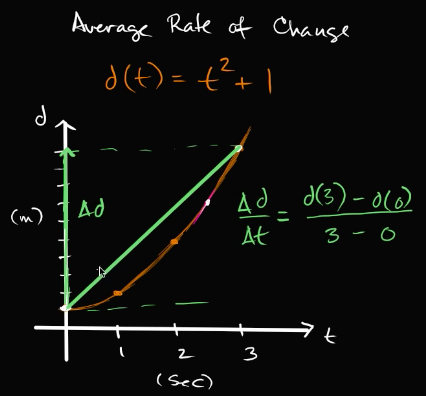 Average Rate of Change
d(t) = t² + 1
d
(m)
Δd
Δd/Δt = (d(3) - d(0))/(3 - 0)
t
1 2 3
(sec)